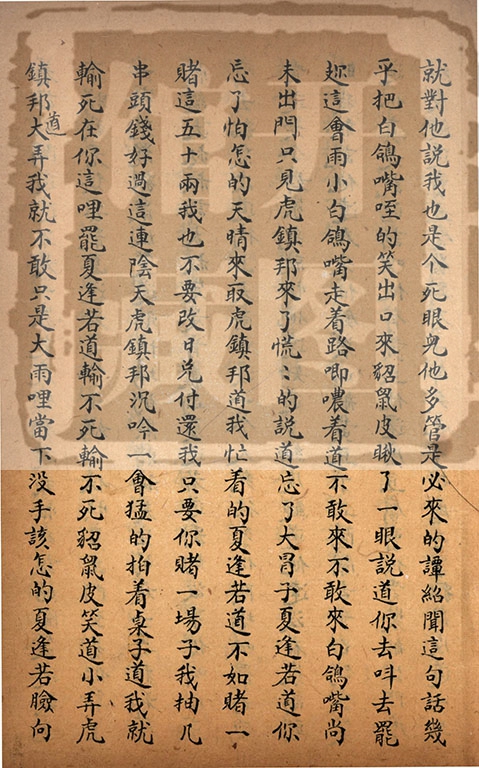 就對他説我也是个死眼皃他多管是必來的譚紹聞這句話幾
乎把白鴿嘴咥的笑出口來貂鼠皮瞅了一眼説道你去呌去罷
趂這會雨小白鴿嘴走着路唧噥着道不敢來不敢來白鴿嘴尚
未出門只見虎鎮邦來了慌〻的説道忘了大冒子夏逢若道你
忘了怕怎的天晴來取虎鎮邦道我忙着的夏逢若道不如賭一
賭這五十兩我也不要改日兑付還我只要你賭一場子我抽几
串頭錢好過這連陰天虎鎮邦沉吟一會猛的拍着桌子道我就
輸死在你這哩罷夏逢若道輸不死輸不死貂鼠皮笑道小弄虎
鎮邦道大弄我就不敢只是大雨哩當下没手該怎的夏逢若臉向